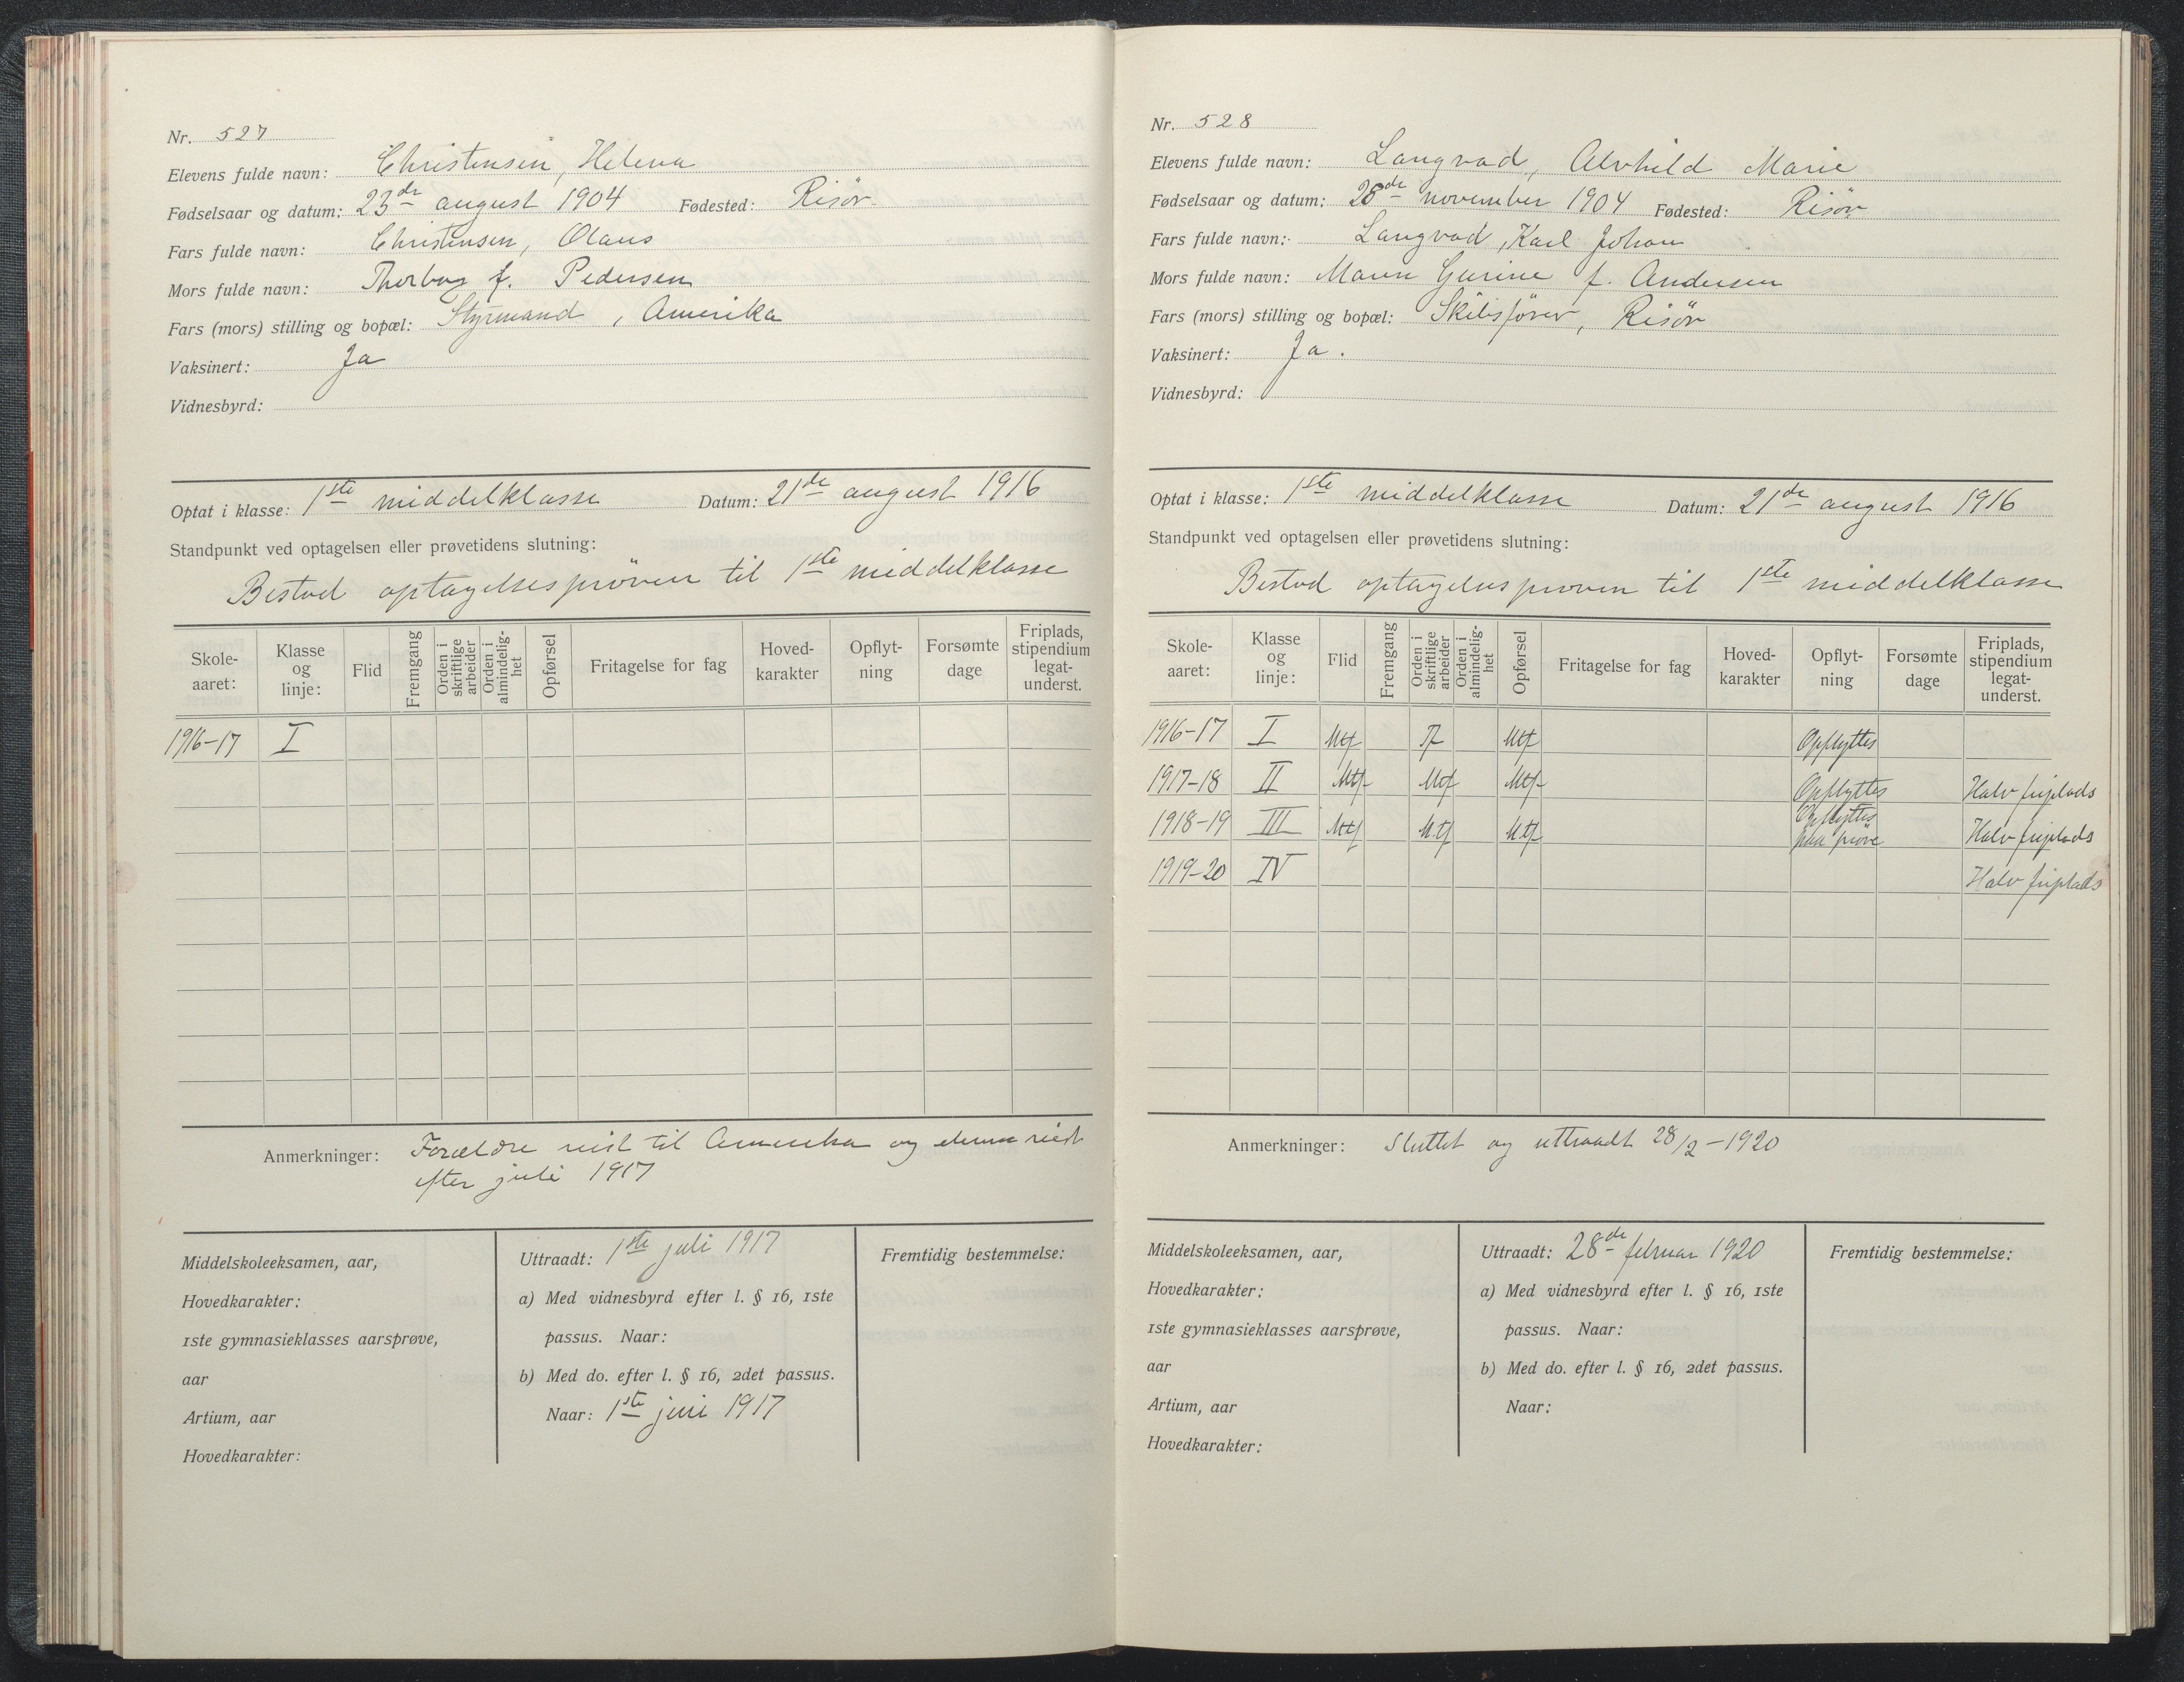 Nr. 527
Elevens fulde navn: Christensen, Helena
Fødselsaar og datum: 23de august 1904 Fødested: Risör
Fars fulde navn: Christensen, Olaus
Mors fulde navn: Thorborg f. Pedersen
Fars (mors) stilling og bopæl: Styrmand, Amerika
Vaksinert: Ja
Vidnesbyrd:
Optat i klasse: 1ste middelklasse Datum: 21de august 1916
Standpunkt ved optagelsen eller prøvetidens slutning:
Bestod optagelsespröven til 1ste middelklasse
Skole-aaret: Klasse og linje: Flid Fremgang Orden i skriftlige arbeider Orden i almindelig-het Opførsel Fritagelse for fag Hoved-karakter Opflyt-ning Forsømte dage Friplads, stipendium legat-underst.
1916-17 I
Anmerkninger: Forældre reist til Amerika og denne reist
efter juli 1917
Middelskoleeksamen, aar,
Hovedkarakter:
1ste gymnasieklasses aarsprøve,
aar
Artium, aar
Hovedkarakter:
Uttraadt: 1ste juli 1917
a) Med vidnesbyrd efter l. § 16, 1ste
passus. Naar:
b) Med do. efter l. § 16, 2det passus.
Naar: 1ste juni 1917
Fremtidig bestemmelse:
Nr. 528
Elevens fulde navn: Langvad, Alvhild Marie
Fødselsaar og datum: 28de november 1904 Fødested: Risör
Fars fulde navn: Langvad, Karl Johan
Mors fulde navn: Maren Gurine f. Andersen
Fars (mors) stilling og bopæl: Skibsförer, Risör
Vaksinert: Ja.
Vidnesbyrd:
Optat i klasse: 1ste middelklasse Datum: 21de august 1916
Standpunkt ved optagelsen eller prøvetidens slutning:
Bestod optagelsesprøven til 1ste middelklasse
Skole-aaret: Klasse og linje: Flid Fremgang Orden i skriftlige arbeider Orden i almindelig-het Opførsel Fritagelse for fag Hoved-karakter Opflyt-ning Forsømte dage Friplads, stipendium legat-underst.
1916-17 I Mtf Tf Mtf Opflyttes
1917-18 II Mtf Mtf Mtf Opflyttes Halv friplads
1918-19 III Mtf Mtf Mtf Opflyttes paa prøve Halv friplads
1919-20 IV Halv friplads
Anmerkninger: Sluttet og uttraadt 28/2-1920
Middelskoleeksamen, aar,
Hovedkarakter:
1ste gymnasieklasses aarsprøve,
aar
Artium, aar
Hovedkarakter:
Uttraadt: 28de februar 1920
a) Med vidnesbyrd efter l. § 16, 1ste
passus. Naar:
b) Med do. efter l. § 16, 2det passus.
Naar:
Fremtidig bestemmelse: